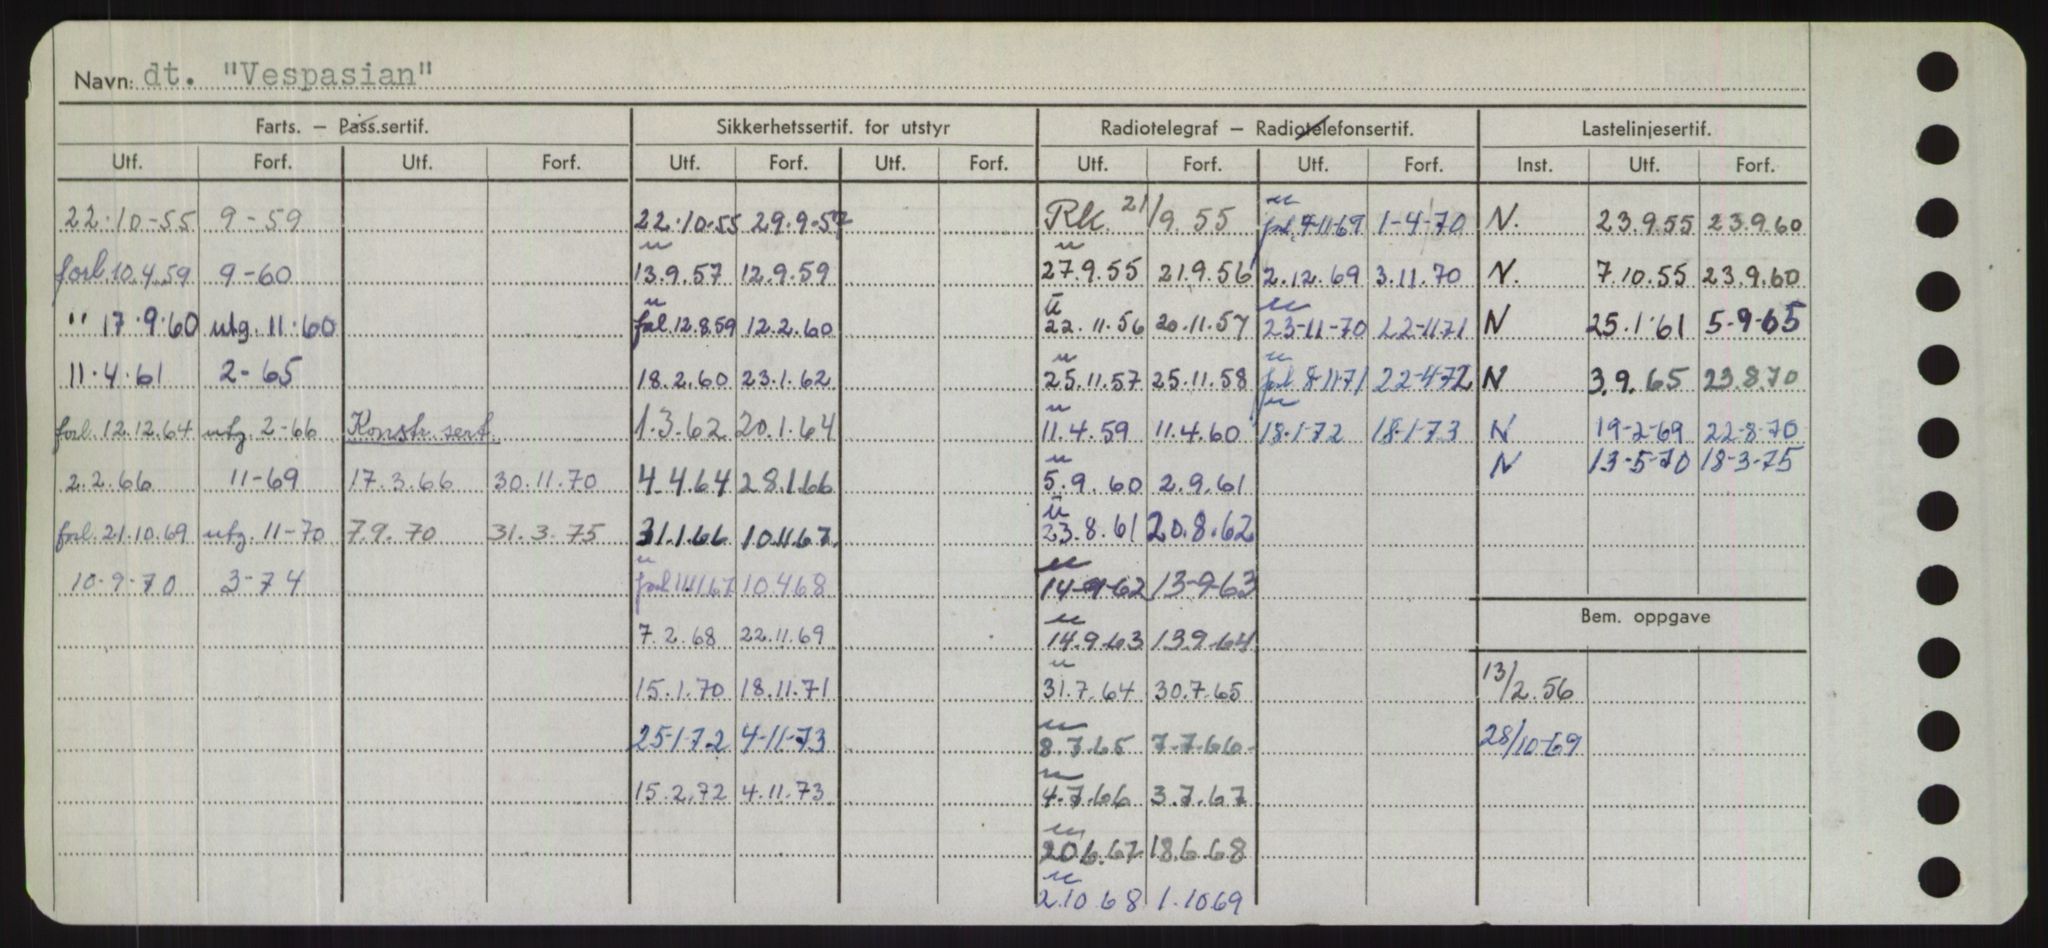 Navn: dt. "Vespasian"
Farts. – Pass.sertif. Sikkerhetssertif. for utstyr Radiotelegraf – Radiotelefonsertif. Lastelinjesertif.
Utf. Forf. Utf. Forf. Utf. Forf. Utf. Forf. Utf. Forf. Utf. Forf. Inst. Utf. Forf.
22.10-55 9-59 22.10.55 29.9.57 Rk. 21/9.55 forl. 7-11-69 1-4-70 N. 23.9.55 23.9.60
forl. 10.4.59 9-60 13.9.57 12.9.59 27.9.55 21.9.56 2.12.69 3.11.70 N. 7.10.55 23.9.60
" 17.9.60 utg. 11.60 forl 12.8.59 12.2.60 22.11.56 20.11.57 23-11-70 22-11-71 N 25.1.61 5.9.65
11.4.61 2-65 18.2.60 23.1.62 25.11.57 25.11.58 forl. 8-11-71 22-4-72 N 3.9.65 23.8.70
forl. 12.12.64 utg. 2-66 Konstr. sert. 1.3.62 20.1.64 11.4.59 11.4.60 18-1-72 18-1-73 N 19-2-69 22-8-70
N 13-5-70 18-3-75
2.2.66 11-69 17.3.66 30.11.70 4.4.64 28.1.66 5.9.60 2.9.61
forl. 21.10.69 utg. 11-70 7.9.70 31.3.75 31.1.66 10.11.67. 23.8.61 20.8.62
10-9-70 3-74 forl 14.11.67 10.4.68 14-9-62 13-9-63
Bem. oppgave
7.2.68 22.11.69 14.9.63 13.9.64
15.1.70 18.11.71 31.7.64 30.7.65 13/2.56
25-1-72 4-11-73 8.7.65 7-7-66 28/10-69
15.2.72 4.11.73 4.7.66 3.7.67
20.6.67 18.6.68
2.10.68 1.10.69